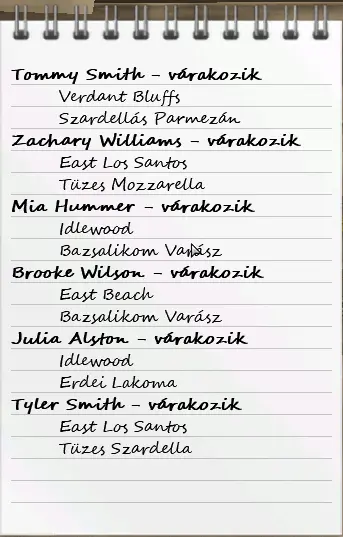 Tommy Smith - várakozik
Verdant Bluffs
Szardellás Parmezán
Zachary Williams - várakozik
East Los Santos
Tüzes Mozzarella
Mia Hummer - várakozik
Idlewood
Bazsalikom Varász
Brooke Wilson - várakozik
East Beach
Bazsalikom Varász
Julia Alston - várakozik
Idlewood
Erdei Lakoma
Tyler Smith - várakozik
East Los Santos
Tüzes Szardella